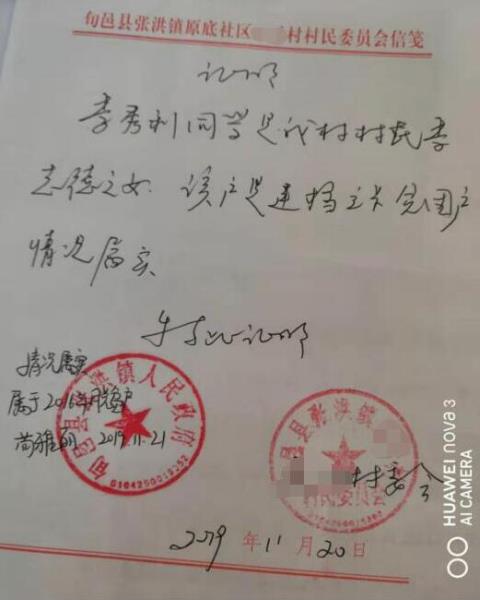 旬邑县张洪镇原底社区 村村民委员会信笺
证明
李秀利同学是我村村民李
志德之女. 该户是建档立卡贫困户
情况属实
特此证明
情况属实
属于2016年脱贫户
2019.11.21
旬邑县张洪镇人民政府
旬邑县张洪镇
村民委员会
村委会
2019年11月20日
HUAWEI nova 3
AI CAMERA